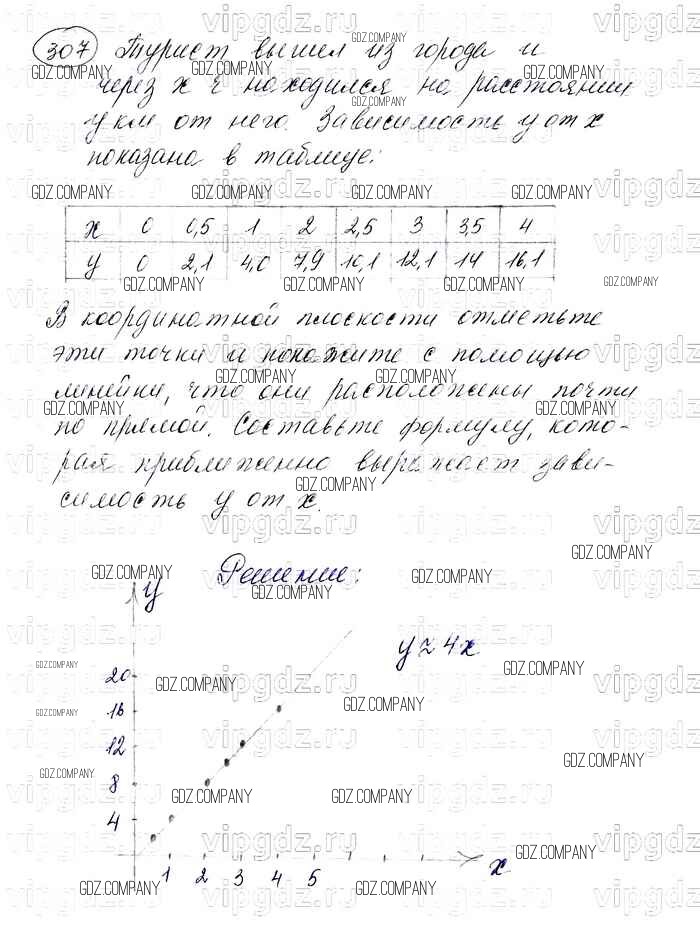 307 Турист вышел из города и
через x ч находился на расстоянии
y км от него. Зависимость y от x
показана в таблице:
x 0 0,5 1 2 2,5 3 3,5 4
y 0 2,1 4,0 7,9 10,1 12,1 14 16,1
В координатной плоскости отметьте
эти точки и покажите с помощью
линейки, что они расположены почти
по прямой. Составьте формулу, кото-
рая приближенно выражает зави-
симость y от x.
Решение:
y
y ≈ 4x
20
16
12
8
4
1 2 3 4 5 x
vipgdz.ru
GDZ.COMPANY